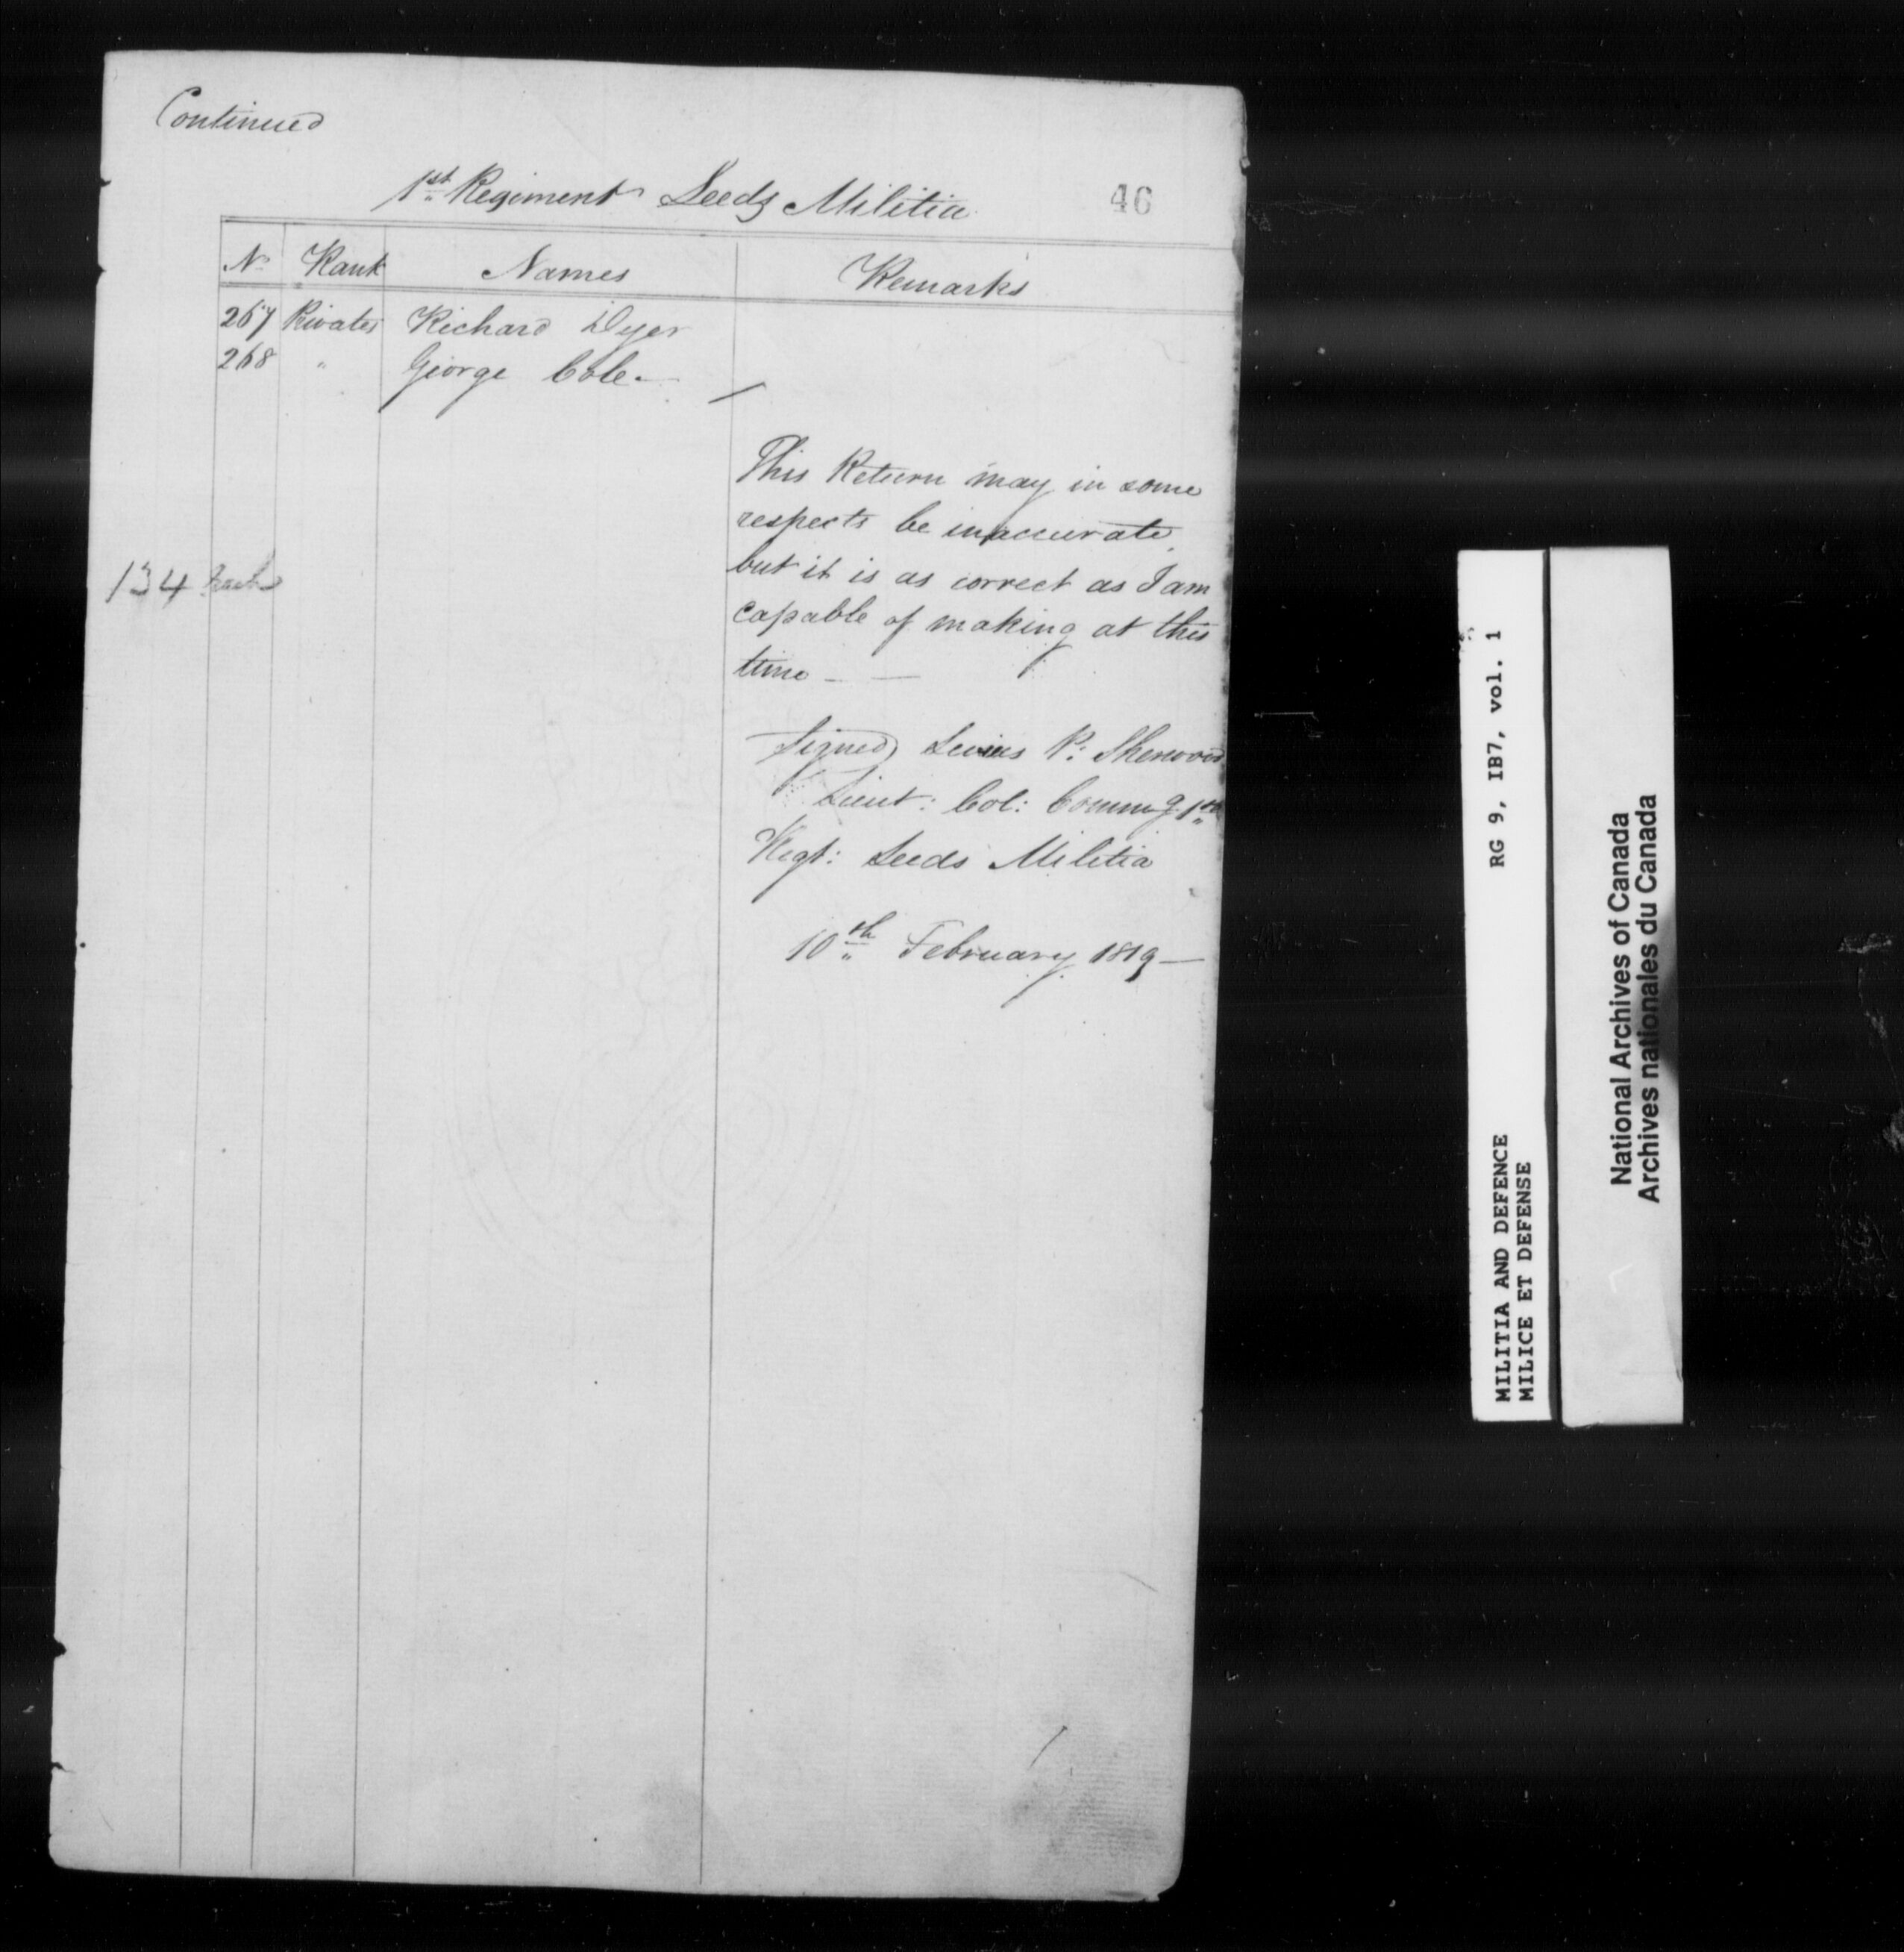 Continued
1st Regiment Leeds Militia
46
No Rank Names Remarks
267 Privates Richard Dyer
268 " George Cole
This Return may in some
respects be inaccurate
but it is as correct as I am
capable of making at this
time
134
Signed) Levius P: Sherwood
Lieut: Col: Commg 1st
Regt: Leeds Militia
10th February 1819
RG 9, IB7, vol. 1
MILITIA AND DEFENCE
MILICE ET DEFENSE
National Archives of Canada
Archives nationales du Canada